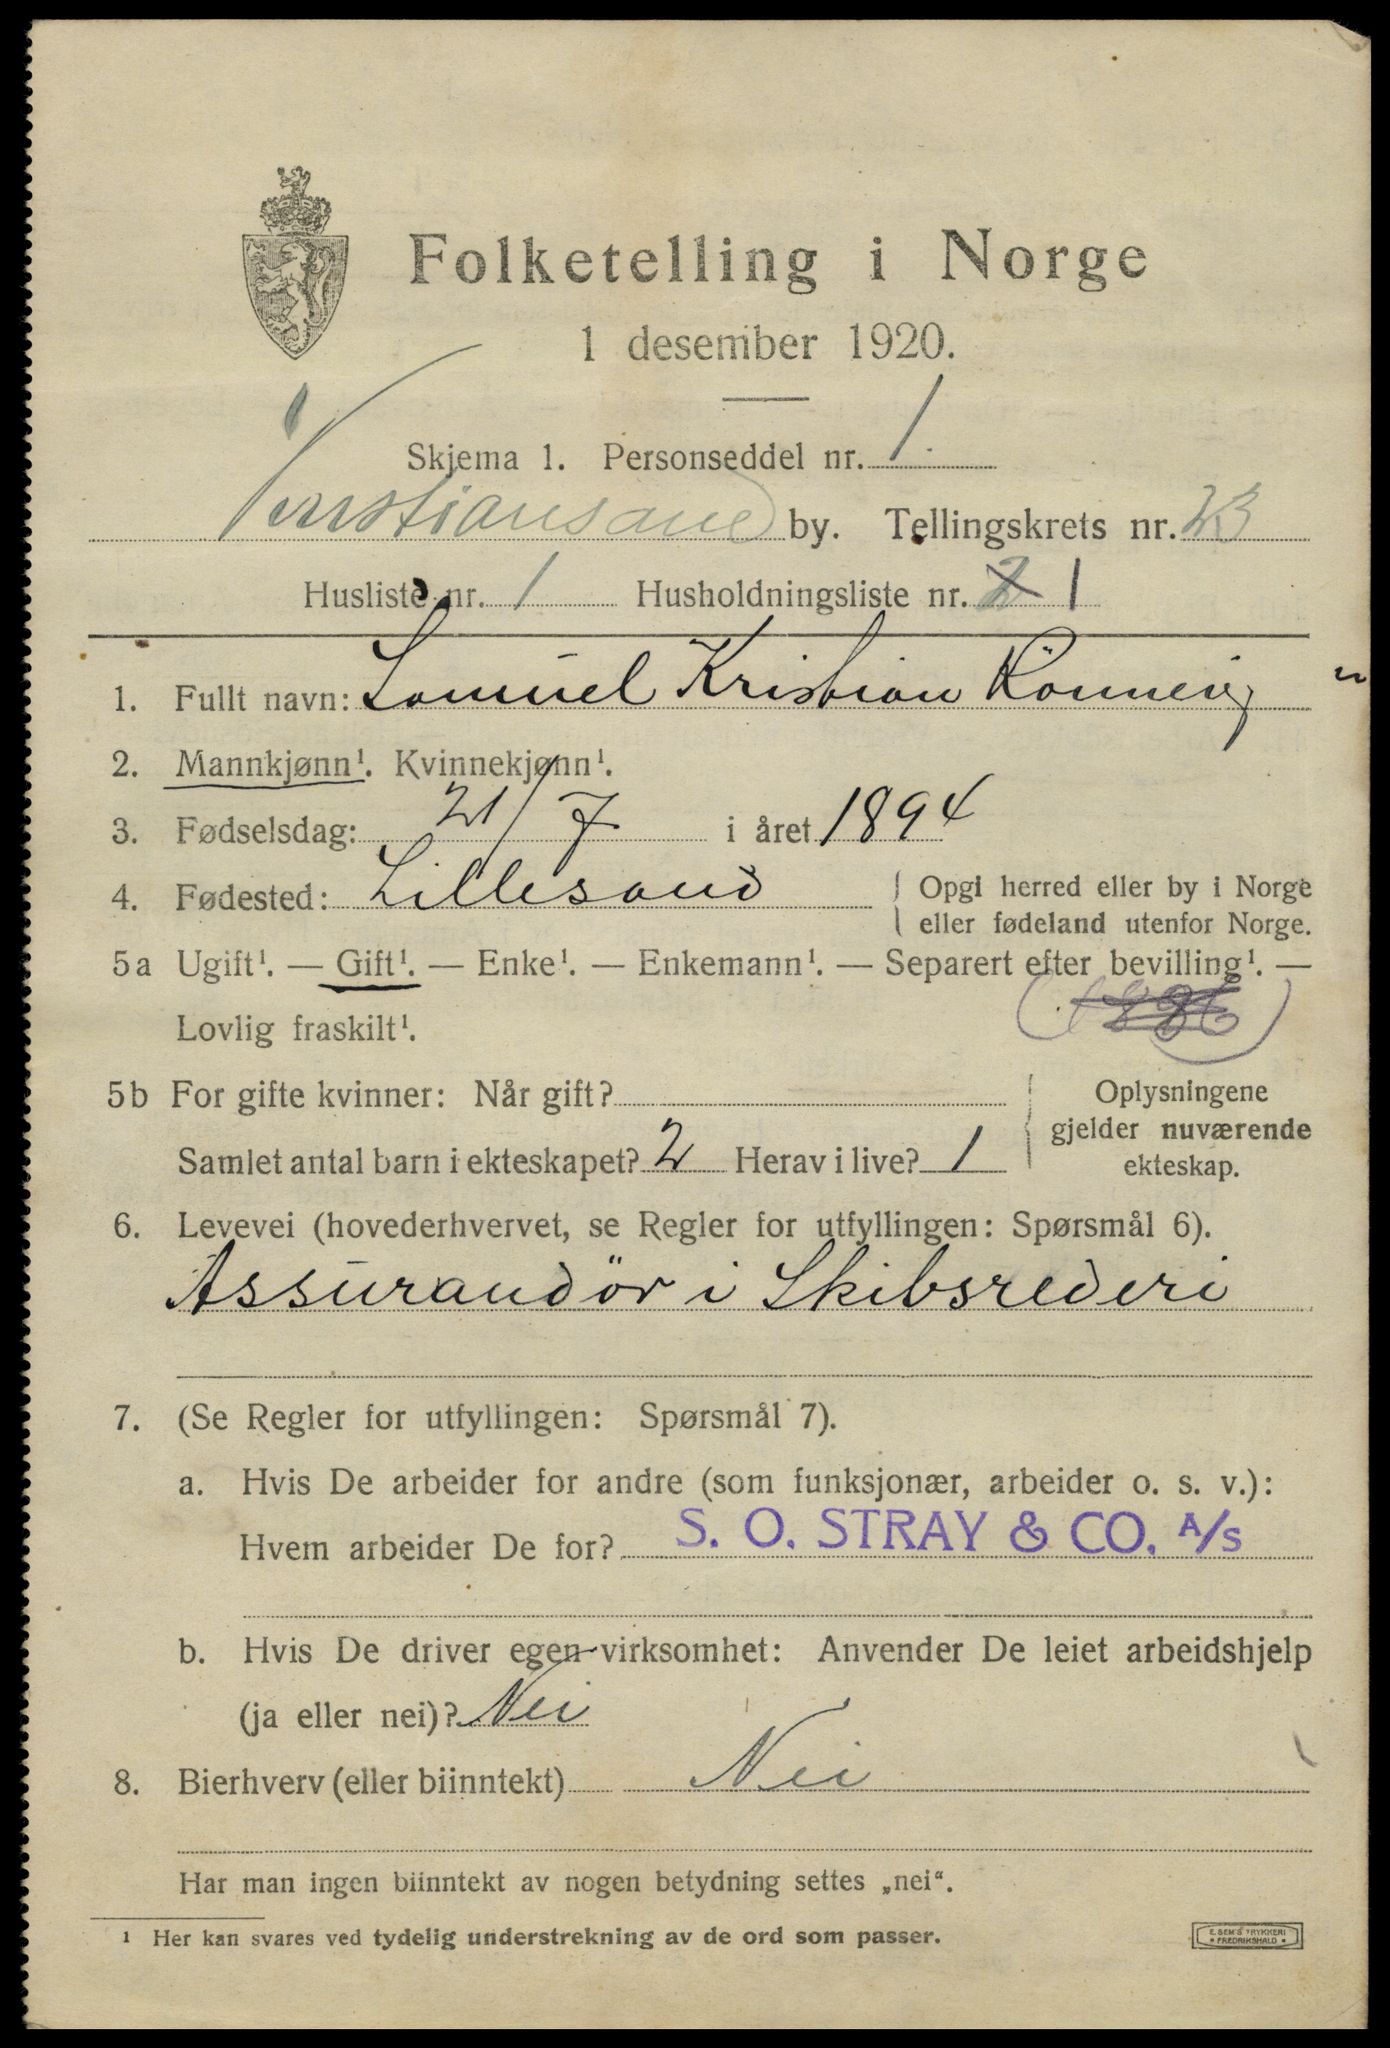 Folketelling i Norge
1 desember 1920.
Skjema 1. Personseddel nr. 1.
Kristiansand by. Tellingskrets nr. 23
Husliste nr. 1 Husholdningsliste nr. 2 1
1. Fullt navn: Samuel Kristian Rönnevig
2. Mannkjønn¹. Kvinnekjønn¹.
3. Fødselsdag: 21/7 i året 1894
4. Fødested: Lillesand Opgi herred eller by i Norge
eller fødeland utenfor Norge.
5a Ugift¹. — Gift¹. — Enke¹. — Enkemann¹. — Separert efter bevilling¹. —
Lovlig fraskilt¹.
5b For gifte kvinner: Når gift?
Samlet antal barn i ekteskapet? 2 Herav i live? 1
Oplysningene
gjelder nuværende
ekteskap.
6. Levevei (hovederhvervet, se Regler for utfyllingen: Spørsmål 6).
Assurandör i Skibsrederi
7. (Se Regler for utfyllingen: Spørsmål 7).
a. Hvis De arbeider for andre (som funksjonær, arbeider o. s. v.):
Hvem arbeider De for? S. O. STRAY & CO. A/S
b. Hvis De driver egen virksomhet: Anvender De leiet arbeidshjelp
(ja eller nei)? Nei
8. Bierhverv (eller biinntekt) Nei
Har man ingen biinntekt av nogen betydning settes „nei“.
¹ Her kan svares ved tydelig understrekning av de ord som passer.
E. SEM'S TRYKKERI
FREDRIKSHALD